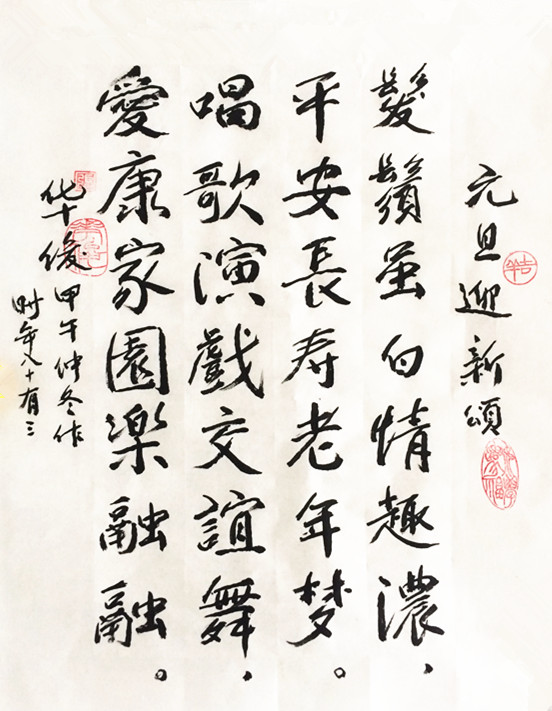 元旦迎新頌
髮鬚虽白情趣濃，
平安長寿老年梦。
唱歌演戲交誼舞，
愛康家園楽融融。
华俊 甲午仲冬作
时年八十有三